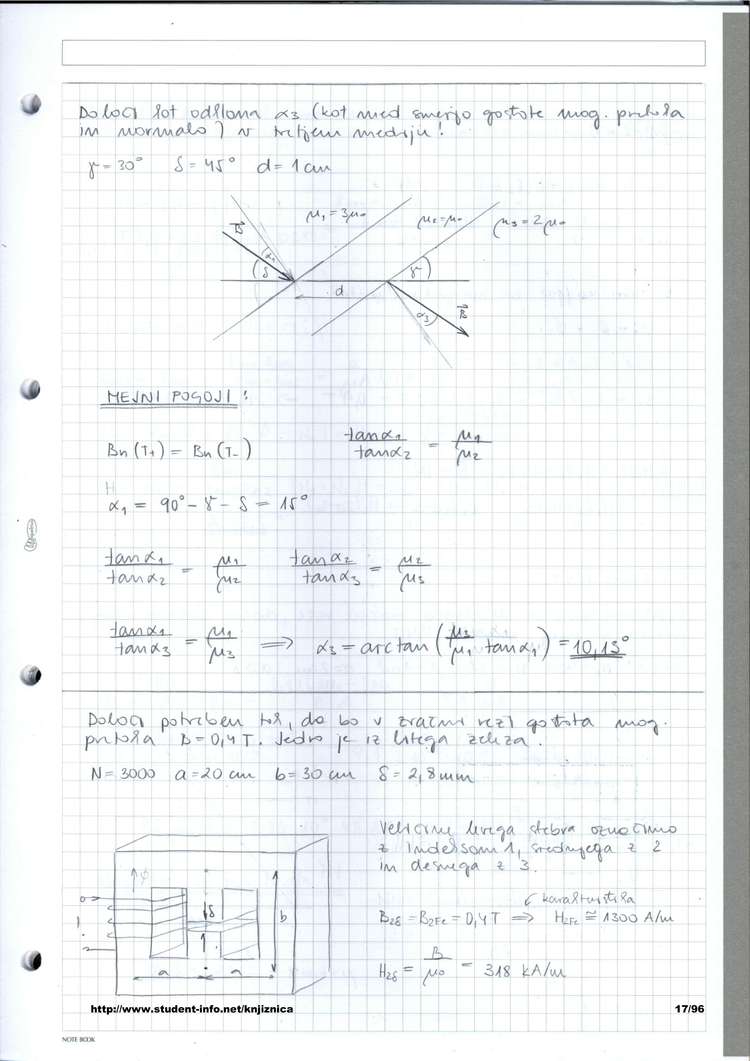 Določi kot odklona α3 (kot med smerjo gostote mag. pretoka
in normalo) v tretjem mediju!
γ = 30° δ = 45° d = 1 cm
μ1 = 3μ0 μ2 = μ0 μ3 = 2μ0
B α1 δ d γ α3 B
MEJNI POGOJI:
Bn (T+) = Bn (T-) tanα1 / tanα2 = μ1 / μ2
H
α1 = 90° - γ - δ = 15°
tanα1 / tanα2 = μ1 / μ2 tanα2 / tanα3 = μ2 / μ3
tanα1 / tanα3 = μ1 / μ3 ⟹ α3 = arctan (μ3 / μ1 tanα1) = 10,13°
Določi potreben tok, da bo v zračni reži gostota mag.
pretoka B = 0,4 T. Jedro je iz litega železa.
N = 3000 a = 20 cm b = 30 cm δ = 2,8 mm
Veličine levega stebra označimo
z indeksom 1, srednjega z 2
in desnega z 3.
ϕ I δ b a a
karakteristika
B2δ = B2Fe = 0,4 T ⟹ H2Fe ≅ 1300 A/m
H2δ = B / μ0 = 318 kA/m
http://www.student-info.net/knjiznica 17/96
NOTE BOOK